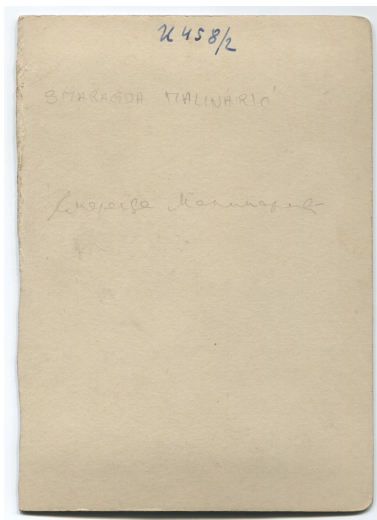 И 458/2
SMARAGDA MALINARIĆ
Смарагда Малинарић